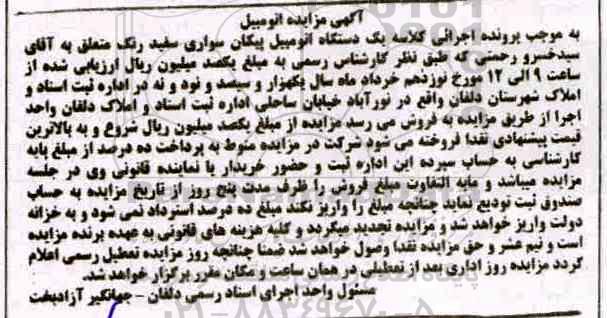 آگهی مزایده اتومبیل
به موجب پرونده اجرائی کلاسه یک دستگاه اتومبیل پیکان سواری سفید رنگ متعلق به آقای
سیدخسرو رحمتی که طبق نظر کارشناس رسمی به مبلغ یکصد میلیون ریال ارزیابی شده از
ساعت ۹ الی ۱۲ مورخ نوزدهم خرداد ماه سال یکهزار و سیصد و نود و نه در اداره ثبت اسناد و
املاک شهرستان دلفان واقع در نورآباد خیابان ساحلی اداره ثبت اسناد و املاک دلفان واحد
اجرا از طریق مزایده به فروش می رسد. مزایده از مبلغ یکصد میلیون ریال شروع و به بالاترین
قیمت پیشنهادی نقدا فروخته می شود شرکت در مزایده منوط به پرداخت ده درصد از مبلغ پایه
کارشناسی به حساب سپرده این اداره ثبت و حضور خریدار یا نماینده قانونی وی در جلسه
مزایده میباشد و مابه التفاوت مبلغ فروش را ظرف مدت پنج روز از تاریخ مزایده به حساب
صندوق ثبت تودیع نماید چنانچه مبلغ را واریز نکند مبلغ ده درصد استرداد نمی شود و به خزانه
دولت واریز خواهد شد و مزایده تجدید میگردد و کلیه هزینه های قانونی به عهده برنده مزایده
است و نیم عشر و حق مزایده نقدا وصول خواهد شد ضمنا چنانچه روز مزایده تعطیل رسمی اعلام
گردد مزایده روز اداری بعد از تعطیلی در همان ساعت و مکان مقرر برگزار خواهد شد.
مسئول واحد اجرای اسناد رسمی دلفان - جهانگیر آزادبخت
۰۲۱-۸۸۳۴۹۶۷۰-۵